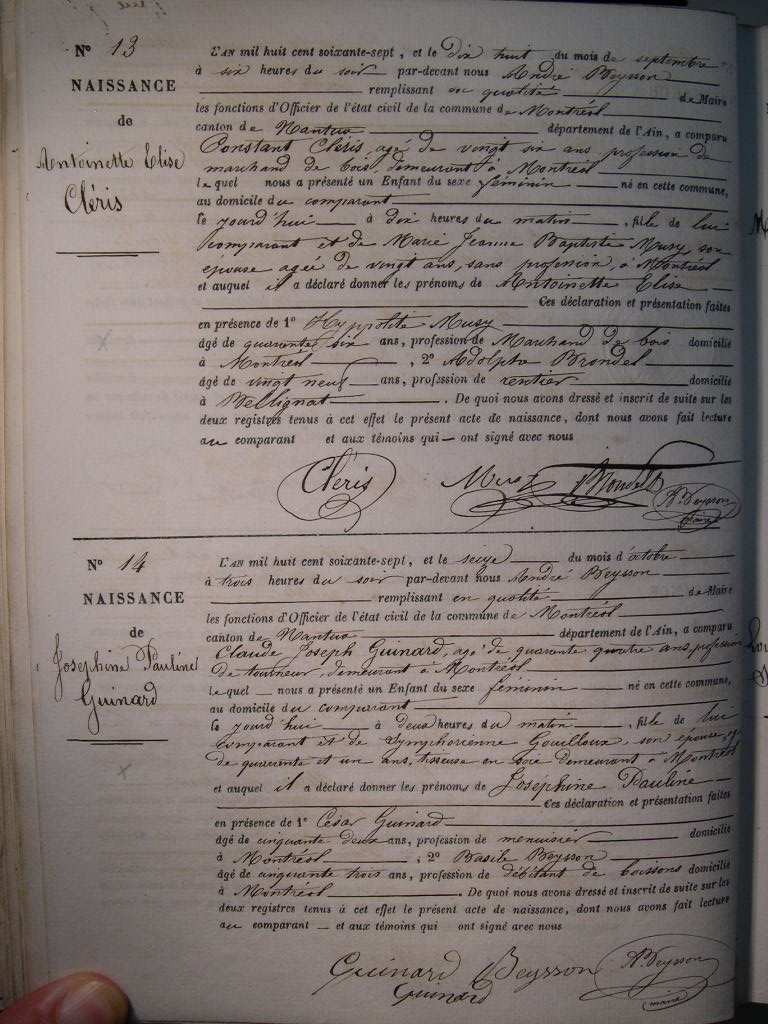 N° 13
NAISSANCE
de
Antoinette Elise
Cléris
L'AN mil huit cent soixante-sept, et le dix huit du mois de septembre
à six heures du soir par-devant nous André Beysson
remplissant en qualité de Maire
les fonctions d'Officier de l'état civil de la commune de Montréal
canton de Nantua département de l'Ain, a comparu
Constant Cléris, agé de vingt six ans profession de
marchand de bois, demeurant à Montréal
le quel nous a présenté un Enfant du sexe féminin né en cette commune,
au domicile du comparant
le jourd'hui à dix heures du matin, fille de lui
comparant et de Marie Jeanne Baptiste Musy, son
épouse agée de vingt ans, sans profession, à Montréal
et auquel il a déclaré donner les prénoms de Antoinette Elise
Ces déclaration et présentation faites
en présence de 1° Hyppolite Musy
âgé de quarante six ans, profession de Marchand de bois domicilié
à Montréal, 2° Adolphe Brondel
âgé de vingt neuf ans, profession de rentier domicilié
à Bellignat. De quoi nous avons dressé et inscrit de suite sur les
deux registres tenus à cet effet le présent acte de naissance, dont nous avons fait lecture
au comparant et aux témoins qui ont signé avec nous
Cléris Musy Brondel A. Beysson
maire
N° 14
NAISSANCE
de
Josephine Pauline
Guinard
L'AN mil huit cent soixante-sept, et le seize du mois d'octobre
à trois heures du soir par-devant nous André Beysson
remplissant en qualité de Maire
les fonctions d'Officier de l'état civil de la commune de Montréal
canton de Nantua département de l'Ain, a comparu
Claude Joseph Guinard, agé de quarante quatre ans, profession
de tourneur, demeurant à Montréal
le quel nous a présenté un Enfant du sexe féminin né en cette commune,
au domicile du comparant
le jourd'hui à deux heures du matin, fille de lui
comparant et de Symphorienne Gouilloux, son épouse, agée
de quarante et un ans, tisseuse en soie demeurant à Montréal
et auquel il a déclaré donner les prénoms de Joséphine Pauline
Ces déclaration et présentation faites
en présence de 1° César Guinard
âgé de cinquante deux ans, profession de menuisier domicilié
à Montréal, 2° Basile Beysson
âgé de cinquante trois ans, profession de débitant de boissons domicilié
à Montréal. De quoi nous avons dressé et inscrit de suite sur les
deux registres tenus à cet effet le présent acte de naissance, dont nous avons fait lecture
au comparant et aux témoins qui ont signé avec nous
Guinard Beysson A. Beysson
Guinard maire